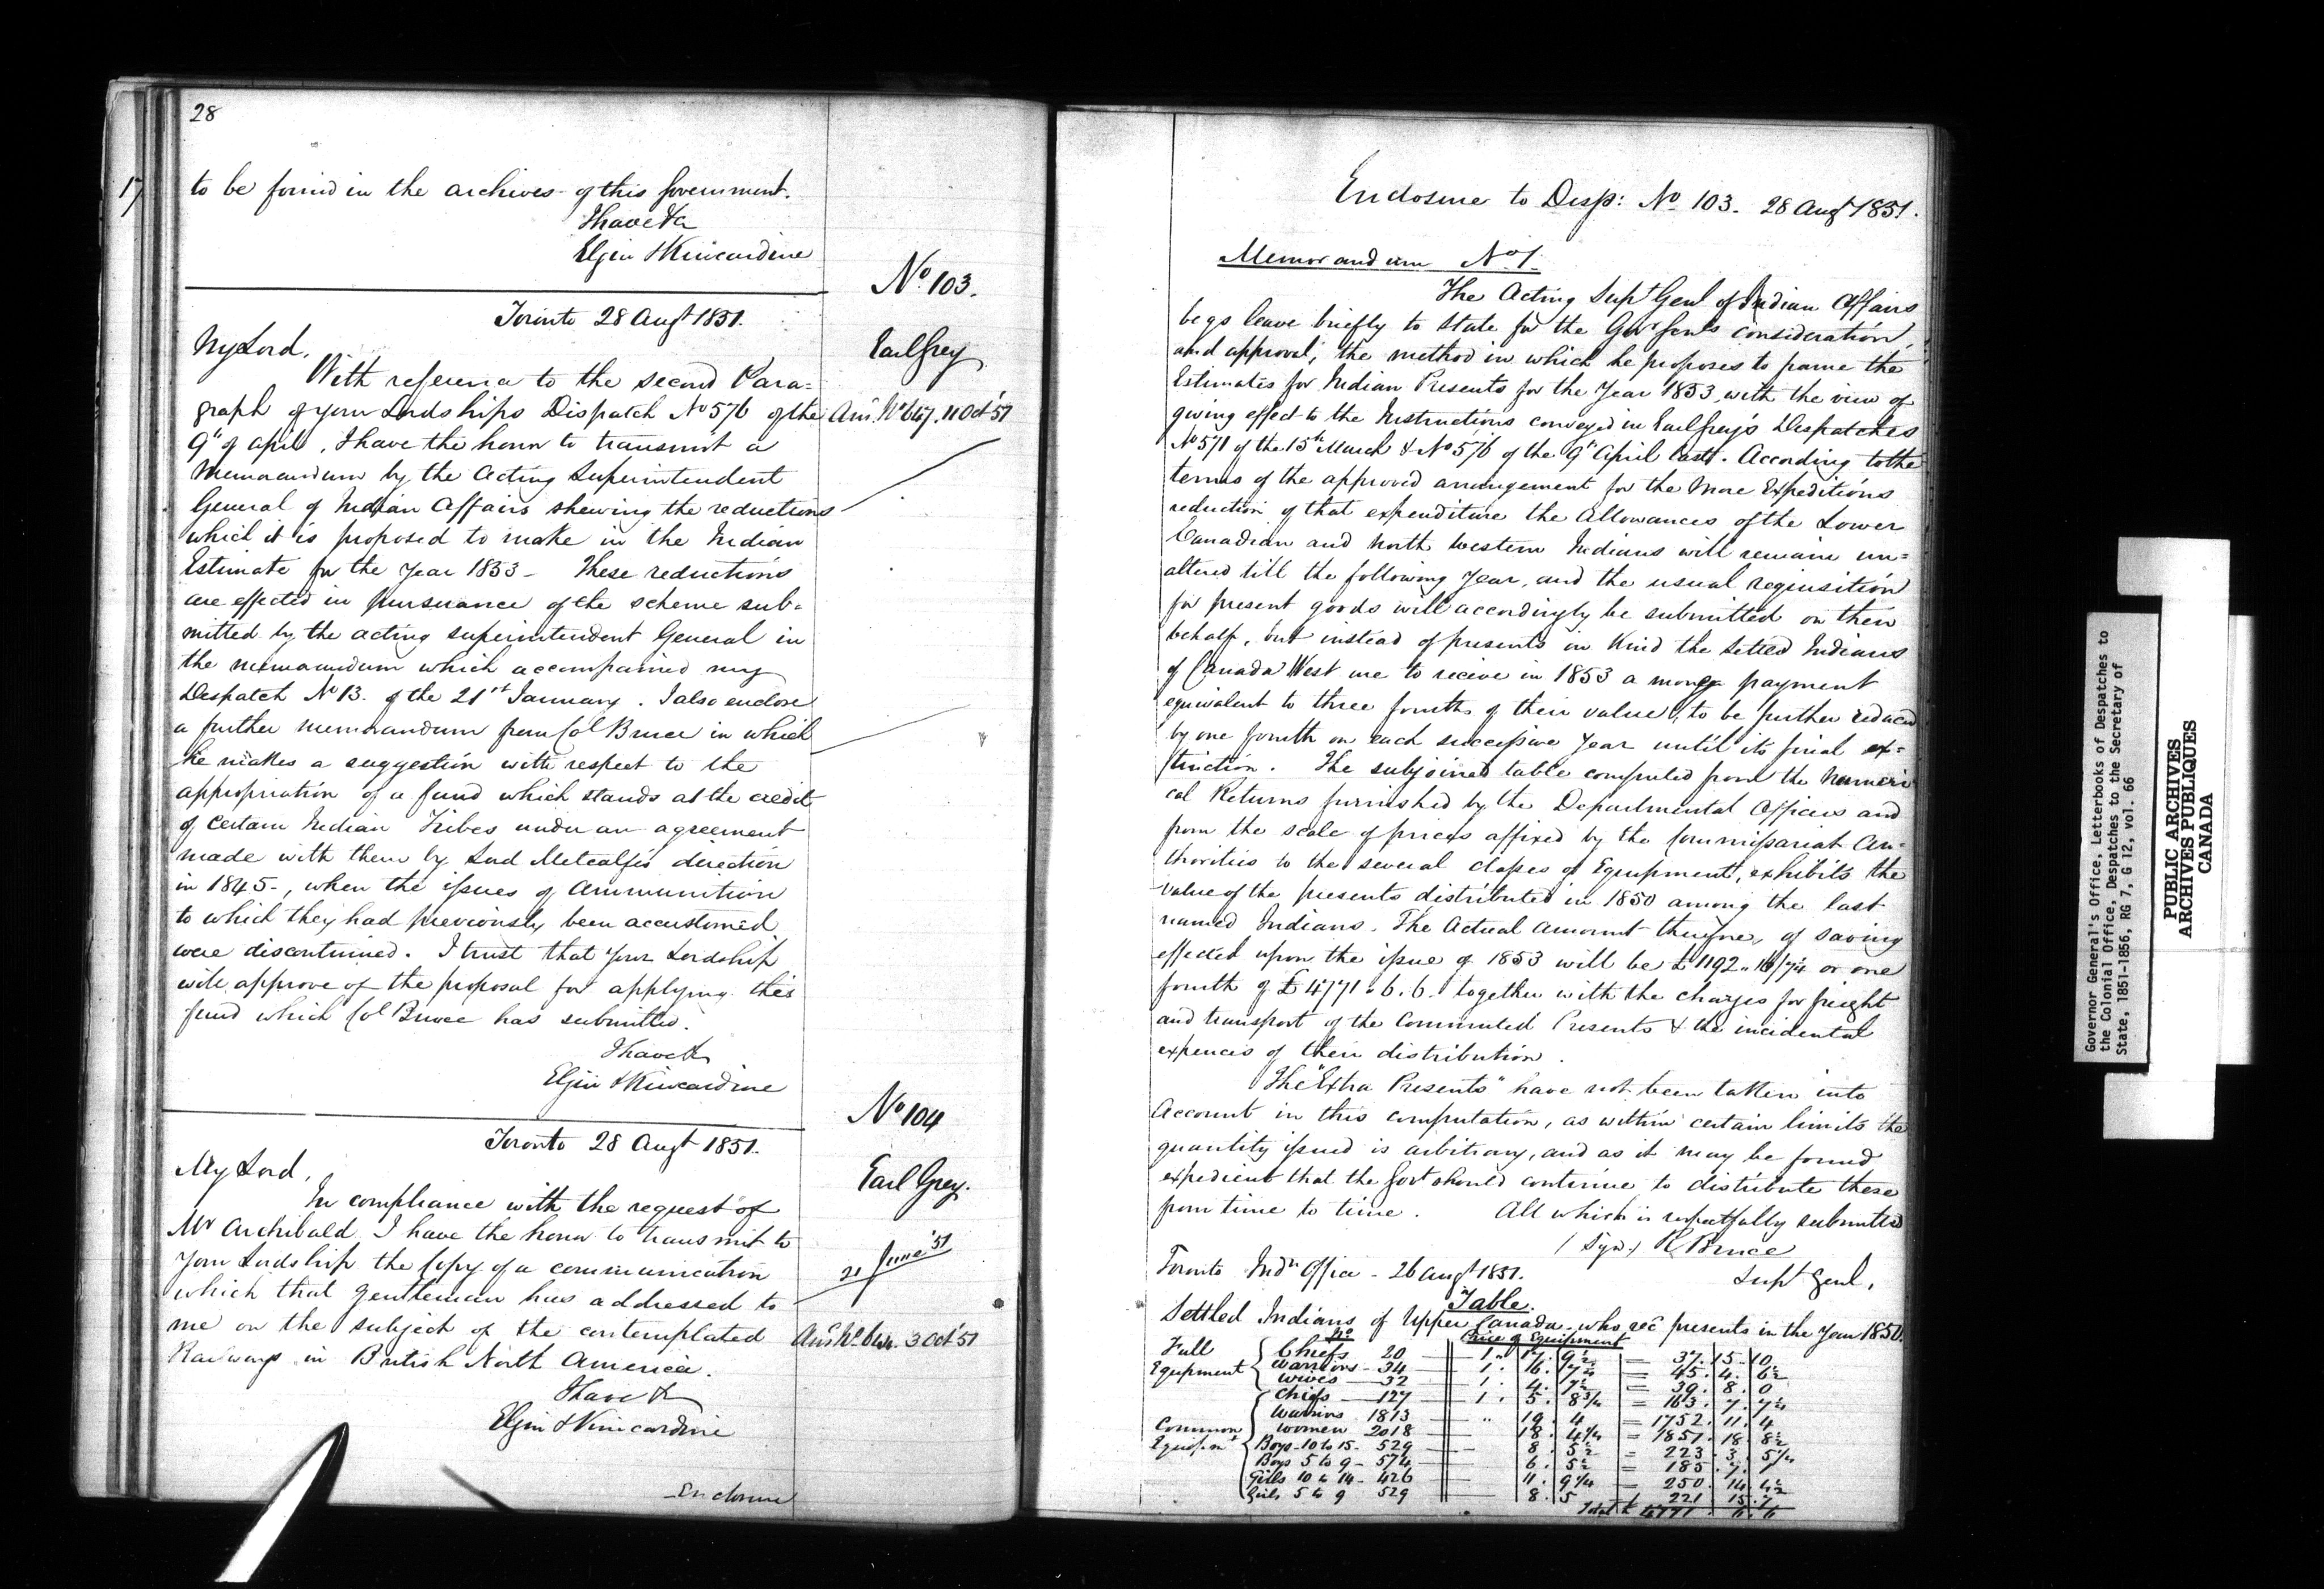 28
17
to be found in the archives of this Government.
I have &c
Elgin & Kincardine
No 103.
Toronto 28 Augt 1851.
Earl Grey
My Lord,
With reference to the second Para=
graph of your Lordships Dispatch No 576 of the
Ans. No 647. 11 Oct '51
9th of April, I have the honor to transmit a
Memorandum by the Acting Superintendent
General of Indian Affairs shewing the reductions
which it is proposed to make in the Indian
Estimate for the Year 1853 - These reductions
are effected in pursuance of the scheme sub=
mitted by the acting superintendent General in
the memorandum which accompanied my
Despatch No 13. of the 21st January. I also enclose
a further memorandum from Col Bruce in which
he makes a suggestion with respect to the
appropriation of a fund which stands at the credit
of certain Indian Tribes under an agreement
made with them by Lord Metcalfe's direction
in 1845-, when the issues of Ammunition
to which they had previously been accustomed
were discontinued. I trust that Your Lordship
will approve of the proposal for applying this
fund which Col Bruce has submitted.
I have &c
Elgin & Kincardine
No 104
Toronto 28 Augt 1851.
Earl Grey.
My Lord,
In compliance with the request of
Mr Archibald I have the honor to transmit to
Your Lordship the Copy of a communication
21 June '51
which that Gentleman has addressed to
me on the subject of the contemplated
Ans No 3 Oct '51
Railways in British North America.
I have &c
Elgin & Kincardine
Enclosure
Enclosure to Desp: No 103. 28 Augt 1851.
Memorandum No 1.
The Acting Supt Genl of Indian Affairs
begs leave briefly to state for the Govr Genl's consideration,
and approval, the method in which he proposes to frame the
Estimates for Indian Presents for the Year 1853, with the view of
giving effect to the Instructions conveyed in Earl Grey's Despatches
No 571 of the 15th March & No 576 of the 9th April last. According to the
terms of the approved arrangement for the More Expeditious
reduction of that expenditure the Allowances of the Lower
Canadian and North Western Indians will remain un=
altered till the following Year, and the usual requisition
for present goods will accordingly be submitted on their
behalf, but instead of presents in Kind the settled Indians
of Canada West are to recieve in 1853 a money payment
equivalent to three fourths of their value, to be further reduced
by one fourth on each successive Year until its final ex=
tinction. The subjoined table computed from the Numeri
cal Returns furnished by the Departmental Officers and
from the scale of prices affixed by the Commissariat Au=
thorities to the several classes of Equipment, exhibits the
value of the presents distributed in 1850 among the last
named Indians. The Actual amount therefore, of saving
effected upon the issue of 1853 will be £1192.. 16/7½ or one
fourth of £4771.. 6. 6. together with the charges for freight
and transport of the Commuted Presents & the incidental
expences of their distribution.
The "Extra Presents" have not been taken into
Account in this computation, as within certain limits the
quantity issued is arbitrary, and as it may be found
expedient that the Govt should continue to distribute these
from time to time. All which is respectfully submitted
(Sgd.) R Bruce
Toronto Indn Office - 26 Augt 1851. Supt Genl,
Table.
Settled Indians of Upper Canada who recd presents in the Year 1850.
No Price of Equipment
Full Chiefs 20 1.. 17. 9½ = 37. 15. 10
Equipment Warriors 34 1. 16. 7¼ = 45. 4. 6½
Wives 32 1. 4. 7½ = 39. 8. 0
Chiefs 127 1. 5. 8¾ = 163. 7. 7¼
Warriors 1813 .. 19. 4 = 1752. 11. 4
Common Women 2018 18. 4¼ = 1851. 18. 8½
Equipmt Boys 10 to 15 - 529 8. 5½ = 223. 3. 5¼
Boys 5 to 9 - 574 6. 5½ = 185. 7. 1
Girls 10 to 14 - 426 11. 9¼ = 250. 14. 4½
Girls 5 to 9 529 8. 5 221 15. 7
Total £ 4771. 6. 6
Governor General's Office, Letterbooks of Despatches to
the Colonial Office, Despatches to the Secretary of
State, 1851-1856, RG 7, G 12, vol. 66
PUBLIC ARCHIVES
ARCHIVES PUBLIQUES
CANADA